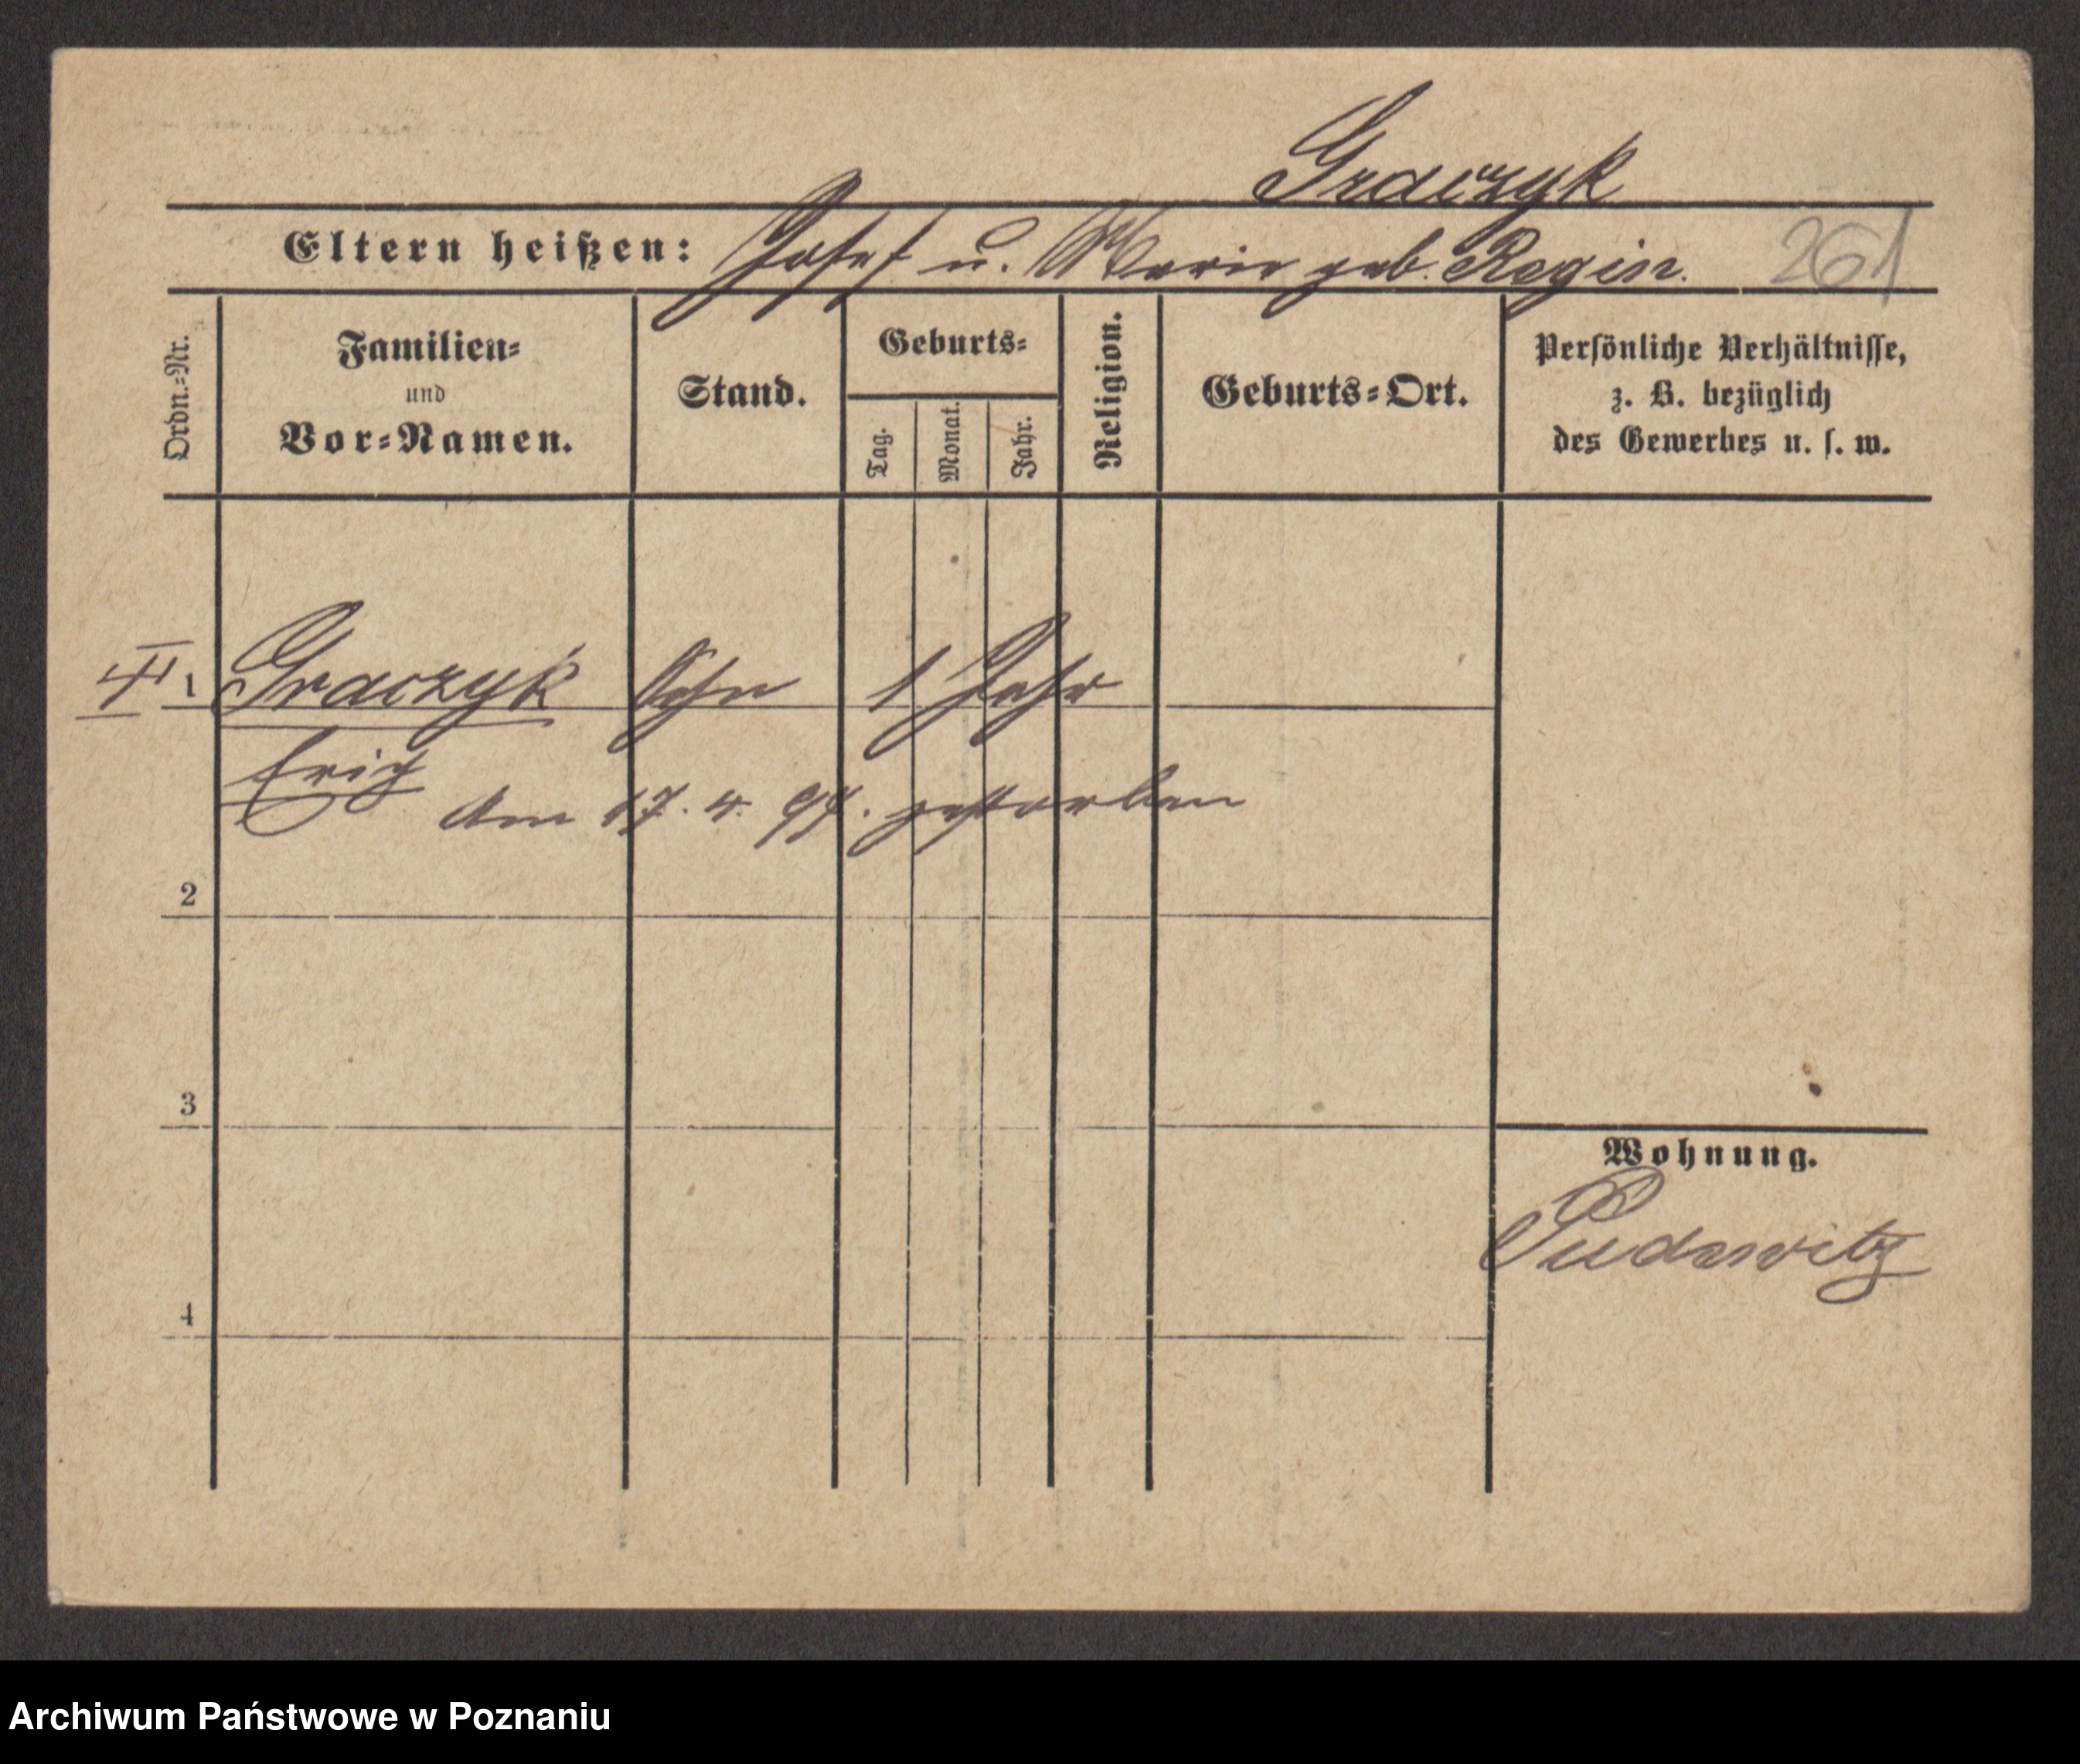 Graczyk
Eltern heißen: Josef u. Marie geb. Rogin. 261
Ordn.=Nr.
Familien=
und
Vor=Namen.
Stand.
Geburts=
Tag.
Monat.
Jahr.
Religion.
Geburts=Ort.
Persönliche Verhältnisse,
z. B. bezüglich
des Gewerbes u. s. w.
1 Graczyk Sohn 1 Jahr
Erich
Am 17. 4. 97. gestorben
2
3
4
Wohnung.
Pudewitz
Archiwum Państwowe w Poznaniu